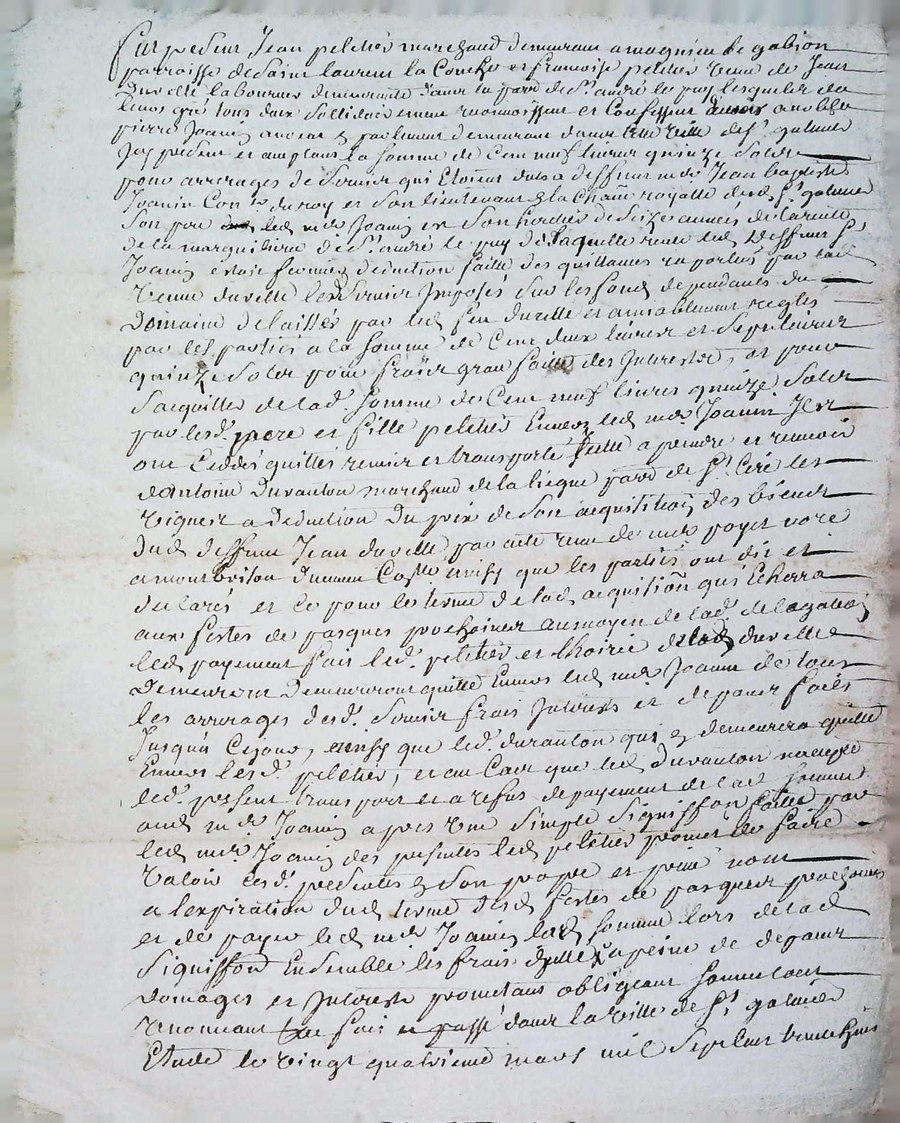 Fut present Jean peletier marchand demeurant a magnieu le gabion
parroisse de Saint laurent la Conche et francoise peletier veuve de Jean
duvelle laboureur demeurante dans la parr. de St. andré le puy lesquels de
leurs gré tous deux Sollidairement reconnoissent et Confessent devoir a noble
pierre Joanin avocat en parlement demeurant dans cette ville de St. galmier
Icy present et acceptant la somme de Cent neuf livres quinze Solds
pour arrerages de Servis qui Etoient dubs a deffunt mre Jean baptiste
Joanin Con.er du roy et Son lieutenant en la Chatnie royalle dud. St. galmier
Son pere led. mre Joanin en Son hoirie de Seize années de la rente
de la marguilliere de St. andré le puy de laquelle rente led. deffunt Sr.
Joanin estoit fermier deduction faitte des quittances raportés par lad.
veuve duvelle lesd. Servis Imposés Sur les fonds dependants du
Domaine delaissés par led. feu duvelle et amiablement reglés
par les parties a la somme de Cent deux livres et Sept livres
quinze Solds pour fraix grace faitte des Interests, et pour
Sacquitter de lad. somme de Cent neuf livres quinze Solds
par lesd. frere et fille peletier Envers led. mre Joanin Ils
ont Ceddés quittés remis et transporté pareille a prendre et recevoir
d'antoine Duranton marchand de la liegue parr. de St. Ciré les
vignes a deduction du prix de Son acquisition des biens
dud. deffunt Jean duvelle par acte receu de mre payet nore
a montbrison dument Collé ainsy que les parties ont dit et
declarés et ce pour le terme de lad. acquisition qui Echerra
aux festes de pasques prochaines au moyen de lad. delegation
led. payement fait led. peletier et lhoirie dud. duvelle
Demeurent Demeureront quitte Envers led. mre Joanin de tous
les arrerages desd. Servis frais Interests et depans faits
Jusqu'a Cejour, ainsy que led. duranton qui en demeurera quitte
Envers lesd. peletier, et au Cas que led. Duranton naccepte
led. present transport et a refus de payement de lad. somme
aud. mre Joanin apres une Simple Signiffon faitte par
led. mre Joanin des presentes led. peletier promet de faire
valoir lesd. presentes en Son propre et privé nom
a lexpiration dud. terme desd. festes de pasques prochaines
et de payer led. mre Joanin lad. somme lors de lad.
Signiffon Ensemble les frais d'jcelle a peine de depans
Domages et Interests promettans obligeans Soumettans
renonceant fait et passé dans la ville de St. galmier
Etude le vingt quatrieme mars mil Sept Cent trente huit